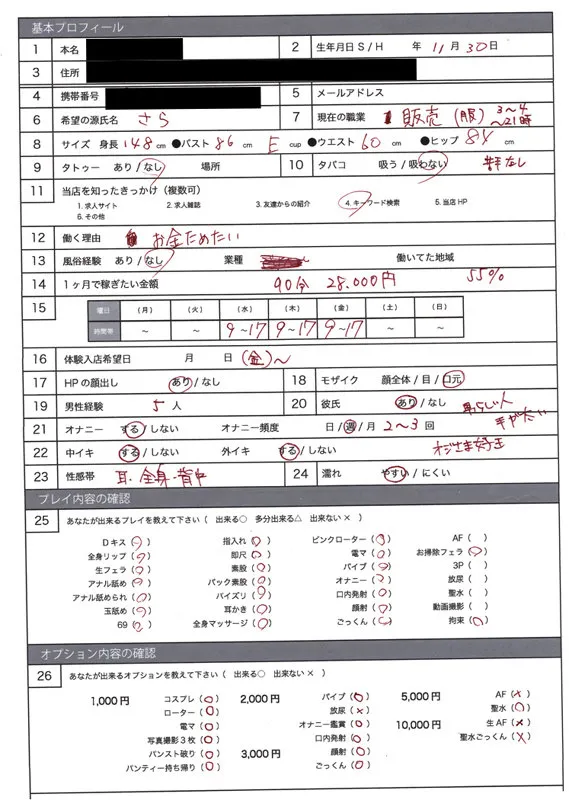 基本プロフィール
1 本名 2 生年月日 S / H 年 11 月 30 日
3 住所
4 携帯番号 5 メールアドレス
6 希望の源氏名 さら 7 現在の職業 販売 (服) 3～4 ～21時
8 サイズ 身長 148 cm ●バスト 86 cm E cup ●ウエスト 60 cm ●ヒップ 84 cm
9 タトゥー あり / なし 場所 10 タバコ 吸う / 吸わない なし
11 当店を知ったきっかけ (複数可)
1. 求人サイト 2. 求人雑誌 3. 友達からの紹介 4. キーワード検索 5. 当店 HP
6. その他
12 働く理由 お金ためたい
13 風俗経験 あり / なし 業種 働いてた地域
14 1ヶ月で稼ぎたい金額 90分 28.000円 55%
15 曜日 (月) (火) (水) (木) (金) (土) (日)
時間帯 ～ ～ 9～17 9～17 9～17 ～ ～
16 体験入店希望日 月 日 (金)～
17 HPの顔出し あり / なし 18 モザイク 顔全体 / 目 / 口元
19 男性経験 5 人 20 彼氏 あり / なし
21 オナニー する / しない オナニー頻度 日 / 週 / 月 2～3 回
22 中イキ する / しない 外イキ する / しない
23 性感帯 耳・全身・背中 24 濡れ やすい / にくい
プレイ内容の確認
25 あなたが出来るプレイを教えて下さい ( 出来る○ 多分出来る△ 出来ない × )
Dキス (○) 指入れ (○) ピンクローター (○) AF ( )
全身リップ (○) 即尺 (○) 電マ (○) お掃除フェラ (○)
生フェラ (○) 素股 (○) バイブ (○) 3P ( )
アナル舐め (○) バック素股 (○) オナニー (○) 放尿 ( )
アナル舐められ (○) パイズリ (○) 口内発射 (○) 聖水 ( )
玉舐め (○) 耳かき (○) 顔射 (○) 動画撮影 ( )
69 (○) 全身マッサージ (○) ごっくん (○) 拘束 (○)
オプション内容の確認
26 あなたが出来るオプションを教えて下さい ( 出来る○ 出来ない × )
1,000円 コスプレ (○) 2,000円 バイブ (○) 5,000円 AF (×)
ローター (○) 放尿 (×) 聖水 (○)
電マ (○) オナニー鑑賞 (○) 10,000円 生AF (×)
写真撮影3枚 (○) 口内発射 (○) 聖水ごっくん (×)
パンスト破り (○) 3,000円 顔射 (○)
パンティー持ち帰り (○) ごっくん (○)